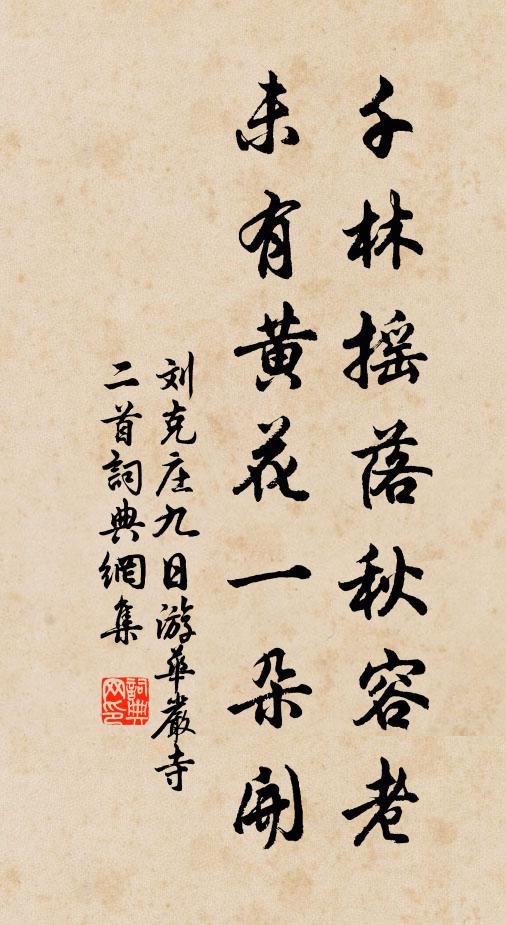 千林摇落秋容老
未有黄花一朵開
刘克庄九日游華嚴寺
二首詞典網集
詞典
网印